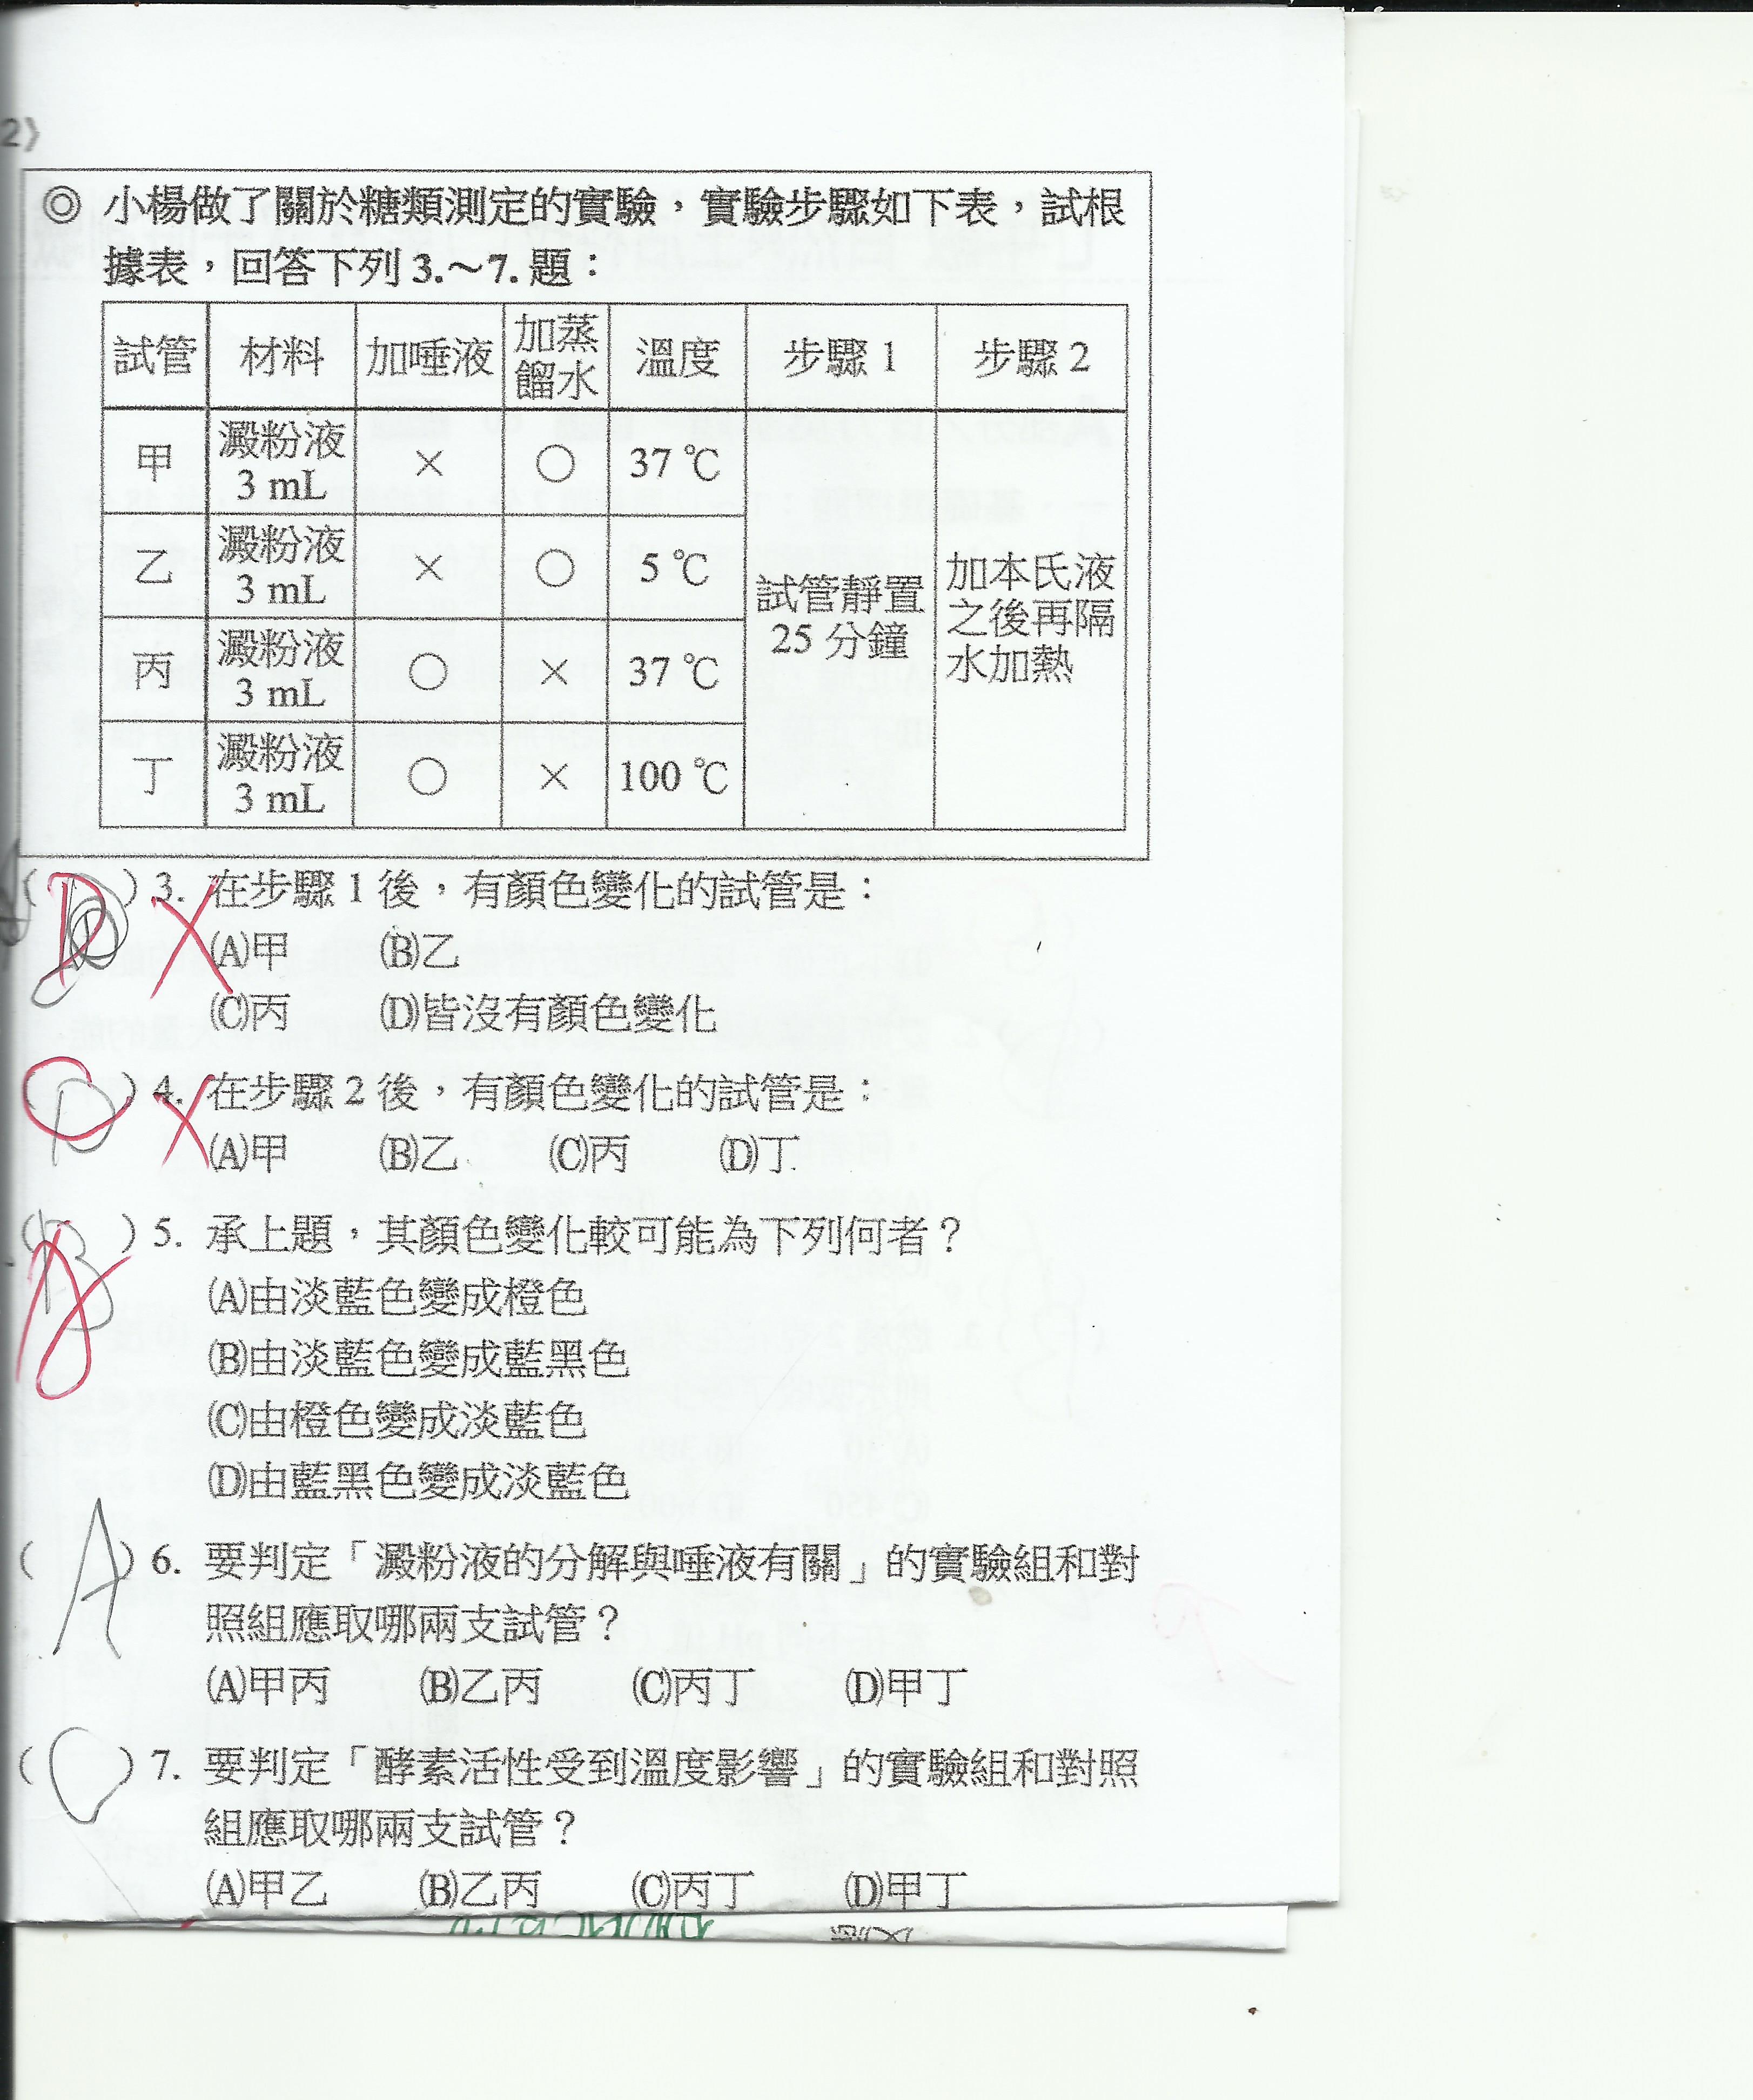 2)
◎ 小楊做了關於糖類測定的實驗，實驗步驟如下表，試根
據表，回答下列 3.～7. 題：
試管 材料 加唾液 加蒸餾水 溫度 步驟 1 步驟 2
甲 澱粉液 3 mL × ○ 37 ℃ 試管靜置 25 分鐘 加本氏液之後再隔水加熱
乙 澱粉液 3 mL × ○ 5 ℃
丙 澱粉液 3 mL ○ × 37 ℃
丁 澱粉液 3 mL ○ × 100 ℃
( D ) 3. 在步驟 1 後，有顏色變化的試管是：
(A)甲 (B)乙
(C)丙 (D)皆沒有顏色變化
( C D ) 4. 在步驟 2 後，有顏色變化的試管是：
(A)甲 (B)乙 (C)丙 (D)丁
( B A ) 5. 承上題，其顏色變化較可能為下列何者？
(A)由淡藍色變成橙色
(B)由淡藍色變成藍黑色
(C)由橙色變成淡藍色
(D)由藍黑色變成淡藍色
( A ) 6. 要判定「澱粉液的分解與唾液有關」的實驗組和對
照組應取哪兩支試管？
(A)甲丙 (B)乙丙 (C)丙丁 (D)甲丁
( C ) 7. 要判定「酵素活性受到溫度影響」的實驗組和對照
組應取哪兩支試管？
(A)甲乙 (B)乙丙 (C)丙丁 (D)甲丁